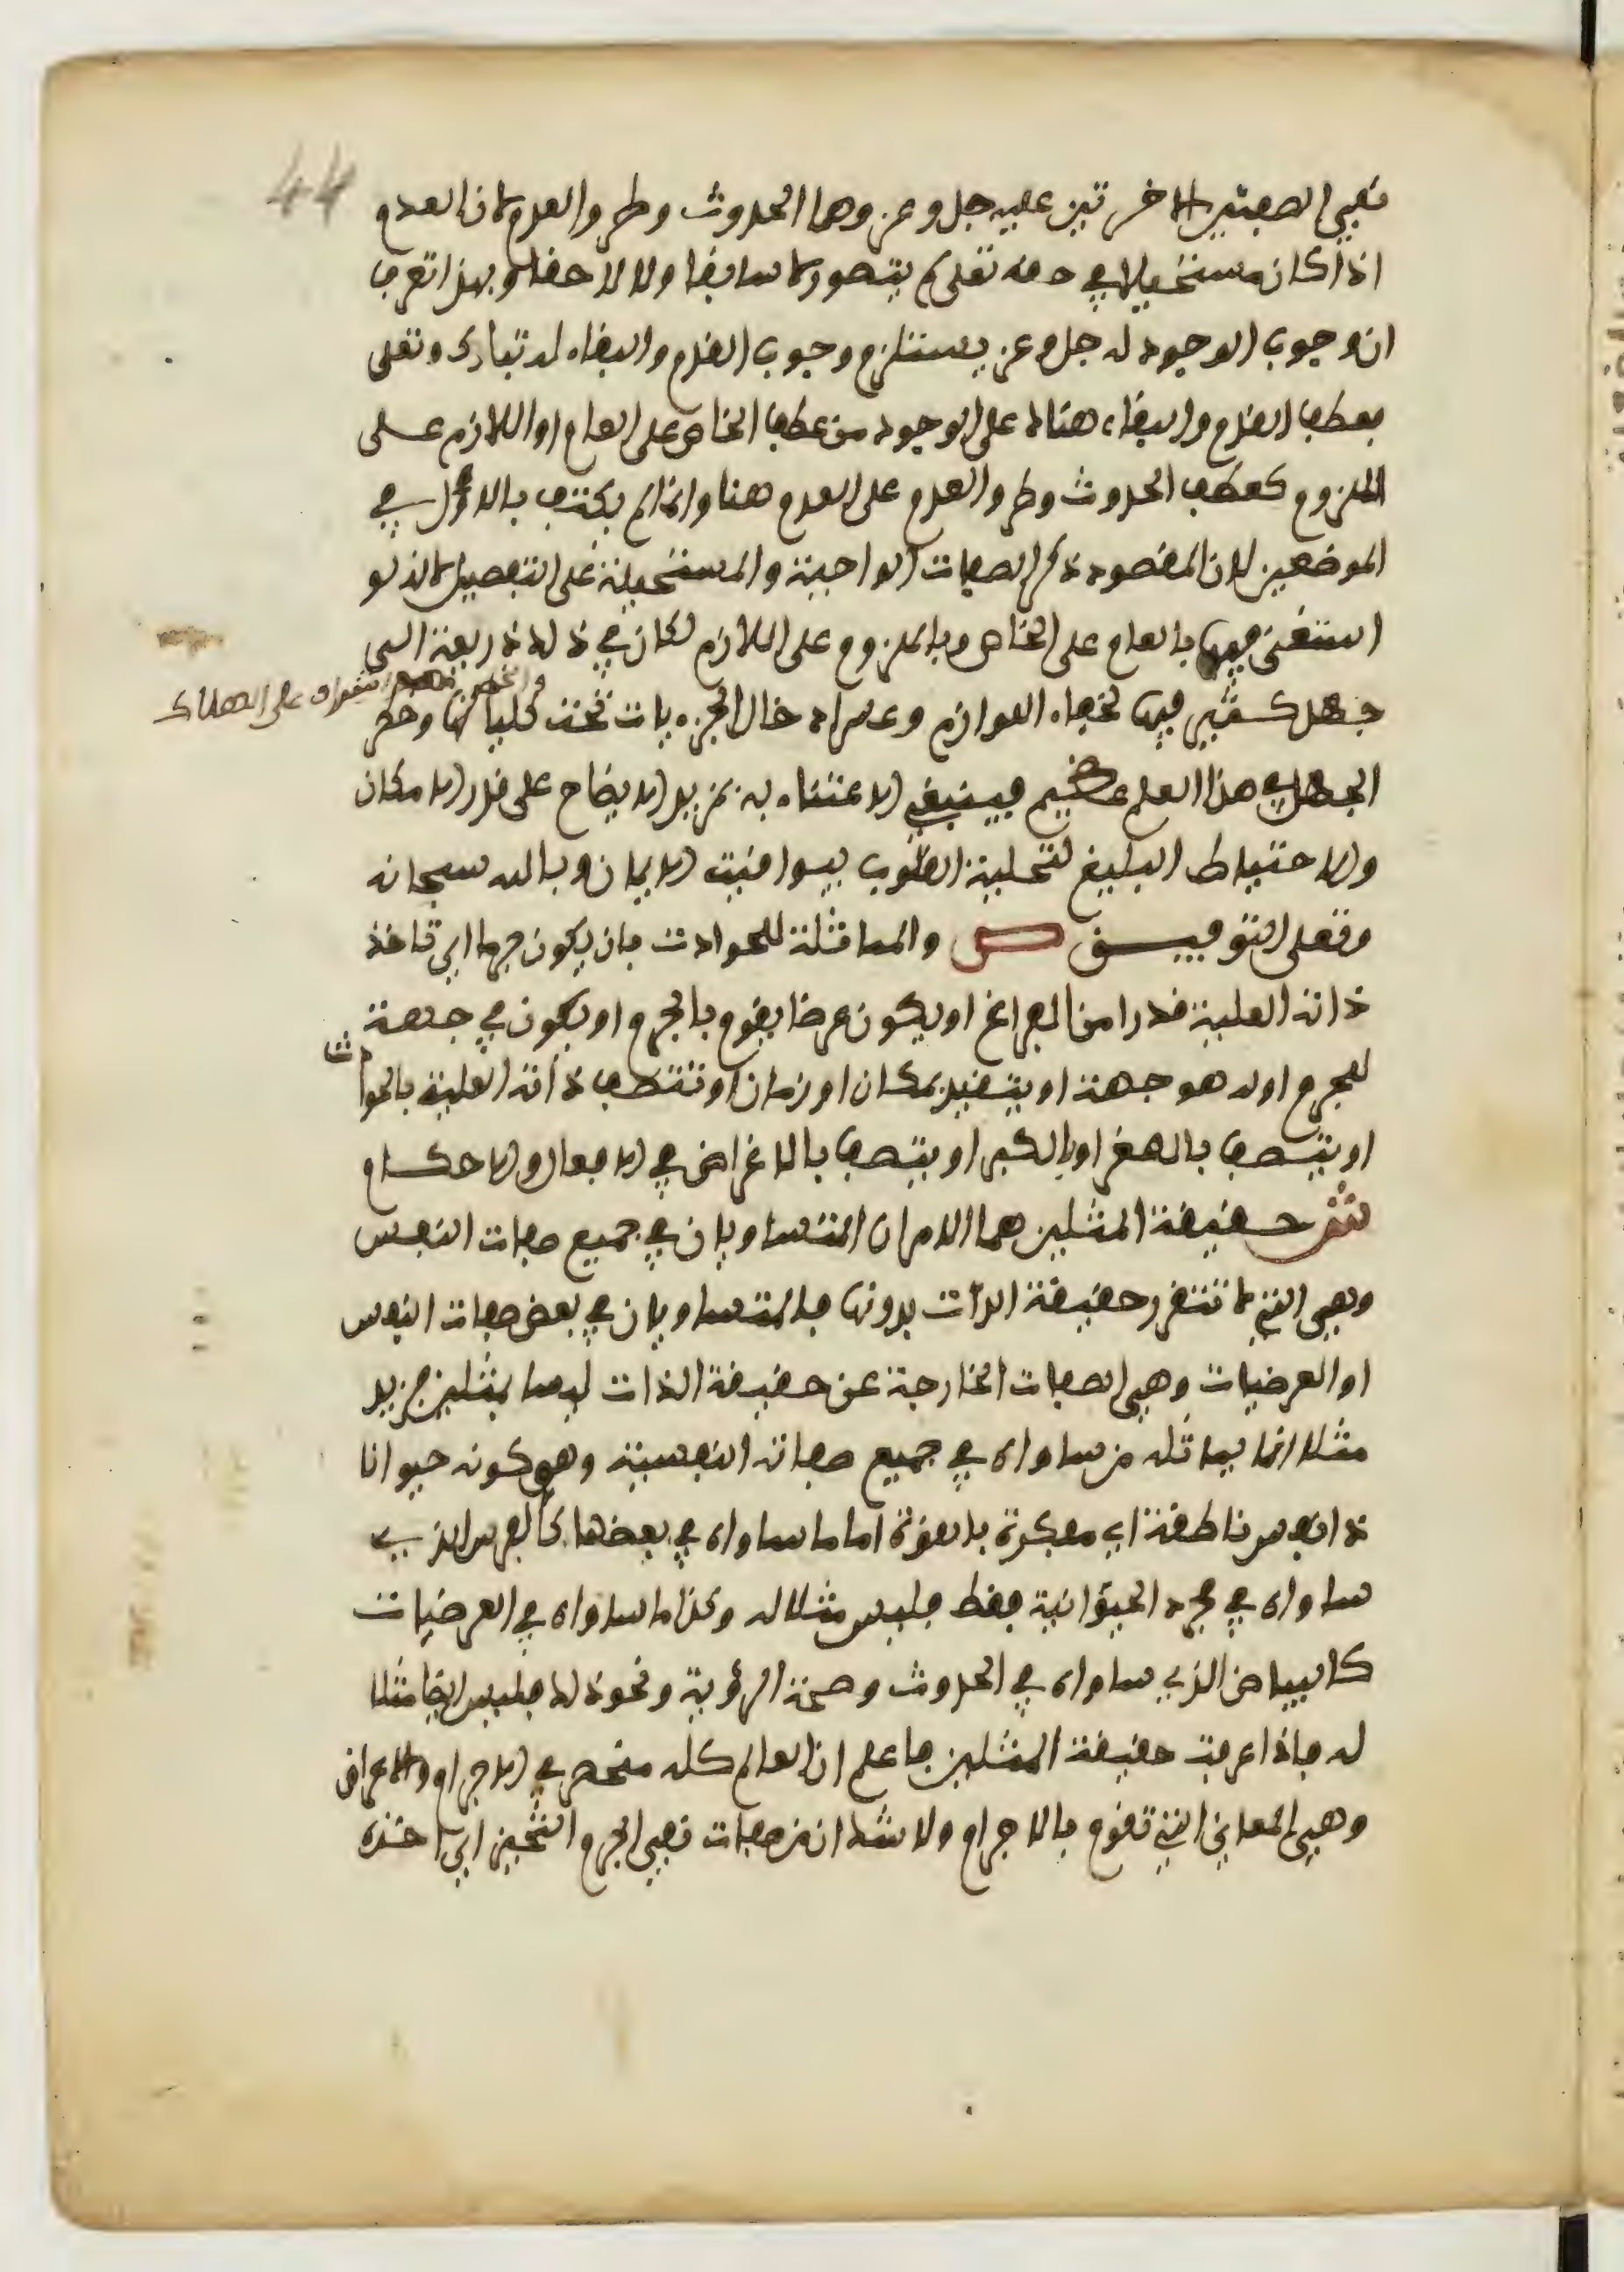 44
نفي الصفتين الاخرتين عليه جل وعز وهما الحدوث وطرو العدم لان العدم
اذا كان مستحيلا في حقه تعلى لم يتصور لا سابقا ولا لاحقا وبهذا تعرف
ان وجوب الوجود له جل وعز يستلزم وجوب القدم والبقاء له تبارك وتعلى
فعطف القدم والبقاء هناك على الوجود من عطف الخاص على العام او اللازم على
الملزوم كعطف الحدوث وطرو العدم على العدم هنا وانما لم يكتف بالاول في
الموضعين لان المقصود ذكر الصفات الواجبة والمستحيلة على التفصيل لانه لو
استغنى فيها بالعام على الخاص وبالملزوم على اللازم لكان في ذلك ذريعة الى
جهل كثير فيها لخفاء اللوازم وعسر ادخال الجزءيات تحت كلياتها وخطر
على الهلاك
الجهل في هذا العلم عظيم فينبغي الاعتناء به بمزيد الايضاح على قدر الامكان
والاحتياط البليغ لتحلية القلوب بيواقيت الايمان وبالله سبحانه
وتعلى التوفيق ص والمماثلة للحوادث بان يكون جرما اي تاخذ
ذاته العلية قدرا من الفراغ او يكون عرضا يقوم بالجرم او يكون في جهة
للجرم اوله هو جهة او يتقيد بمكان او زمان او تتصف ذاته العلية بالحوادث
او يتصف بالصغر او بالكبر او يتصف بالاغراض في الافعال والاحكام
ش حقيقة المثلين هما الامران المتساويان في جميع صفات النفس
وهي التي لا تتقرر حقيقة الذات بدونها فالمتساويان في بعض صفات النفس
او العرضيات وهي الصفات الخارجة عن حقيقة الذات ليسا بمثلين فزيد
مثلا انما يماثله من ساواه في جميع صفاته النفسية وهو كونه حيوانا
ذا نفس ناطقة اي مفكرة بالقوة اما ما ساواه في بعضها كالفرس الذي
ساواه في مجرد الحيوانية فقط فليس مثلا له وكذا ما ساواه في العرضيات
كالبياض الذي ساواه في الحدوث وصحة الرؤية ونحو ذلك فليس ايضا مثلا
له فاذا عرفت حقيقة المثلين فاعلم ان العالم كله منحصر في الاجرام والاعراض
وهي المعاني التي تقوم بالاجرام ولا شك ان من صفات نفس الجرم التحيز اي اخذه